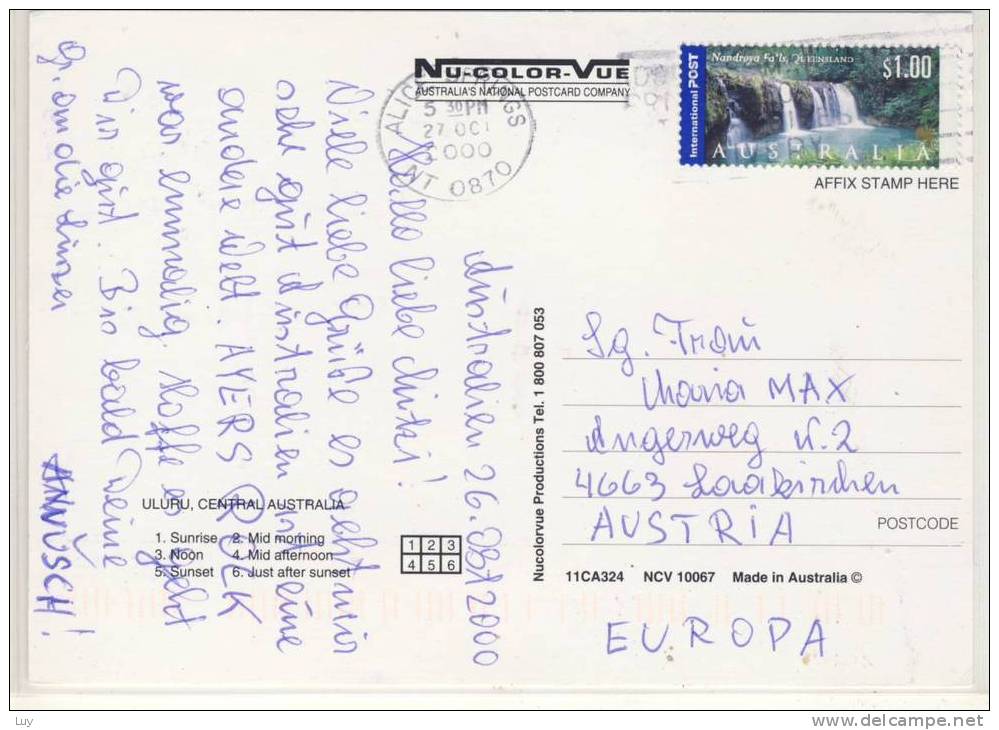 NU-COLOR-VUE
AUSTRALIA'S NATIONAL POSTCARD COMPANY
ALICE SPRINGS
5 30PM
27 OCT
2000
NT 0870
International POST
Nandroya Falls, QUEENSLAND
$1.00
AUSTRALIA
AFFIX STAMP HERE
Australien 26. Okt 2000
Hallo liebe
Viele liebe Grüße es geht mir
sehr gut Australien ist eine
andere Welt. AYERS ROCK
war einmalig. Hoffe es geht
Dir gut. Bis bald Deine
ANNUSCH!
an die Linzer
ULURU, CENTRAL AUSTRALIA
1. Sunrise 2. Mid morning
3. Noon 4. Mid afternoon
5. Sunset 6. Just after sunset
1 2 3
4 5 6
Nucolorvue Productions Tel. 1 800 807 053
Sg. Frau
Maria MAX
Angerweg N. 2
4663 Laakirchen
AUSTRIA
POSTCODE
11CA324 NCV 10067 Made in Australia ©
EUROPA
Luy
delcampe.net